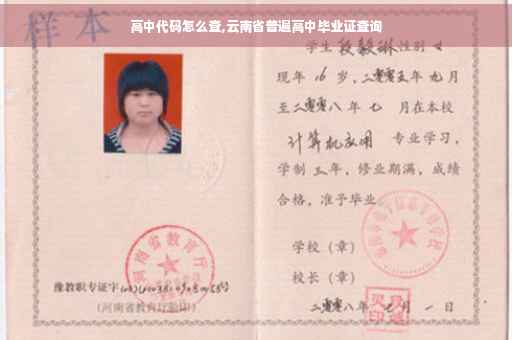 高中代码怎么查,云南省普遍高中毕业证查询
样本
学生 段毅琳 性别 女
现年 16 岁，二零零五年 九 月
至二零零八 年 七 月在本校
计算机应用 专业学习，
学制 三 年，修业期满，成绩
合格，准予毕业
学校（章）
校长（章）
二零零八年 月 一 日
河南省教育厅
豫教职专证字
(河南省教育厅验印)